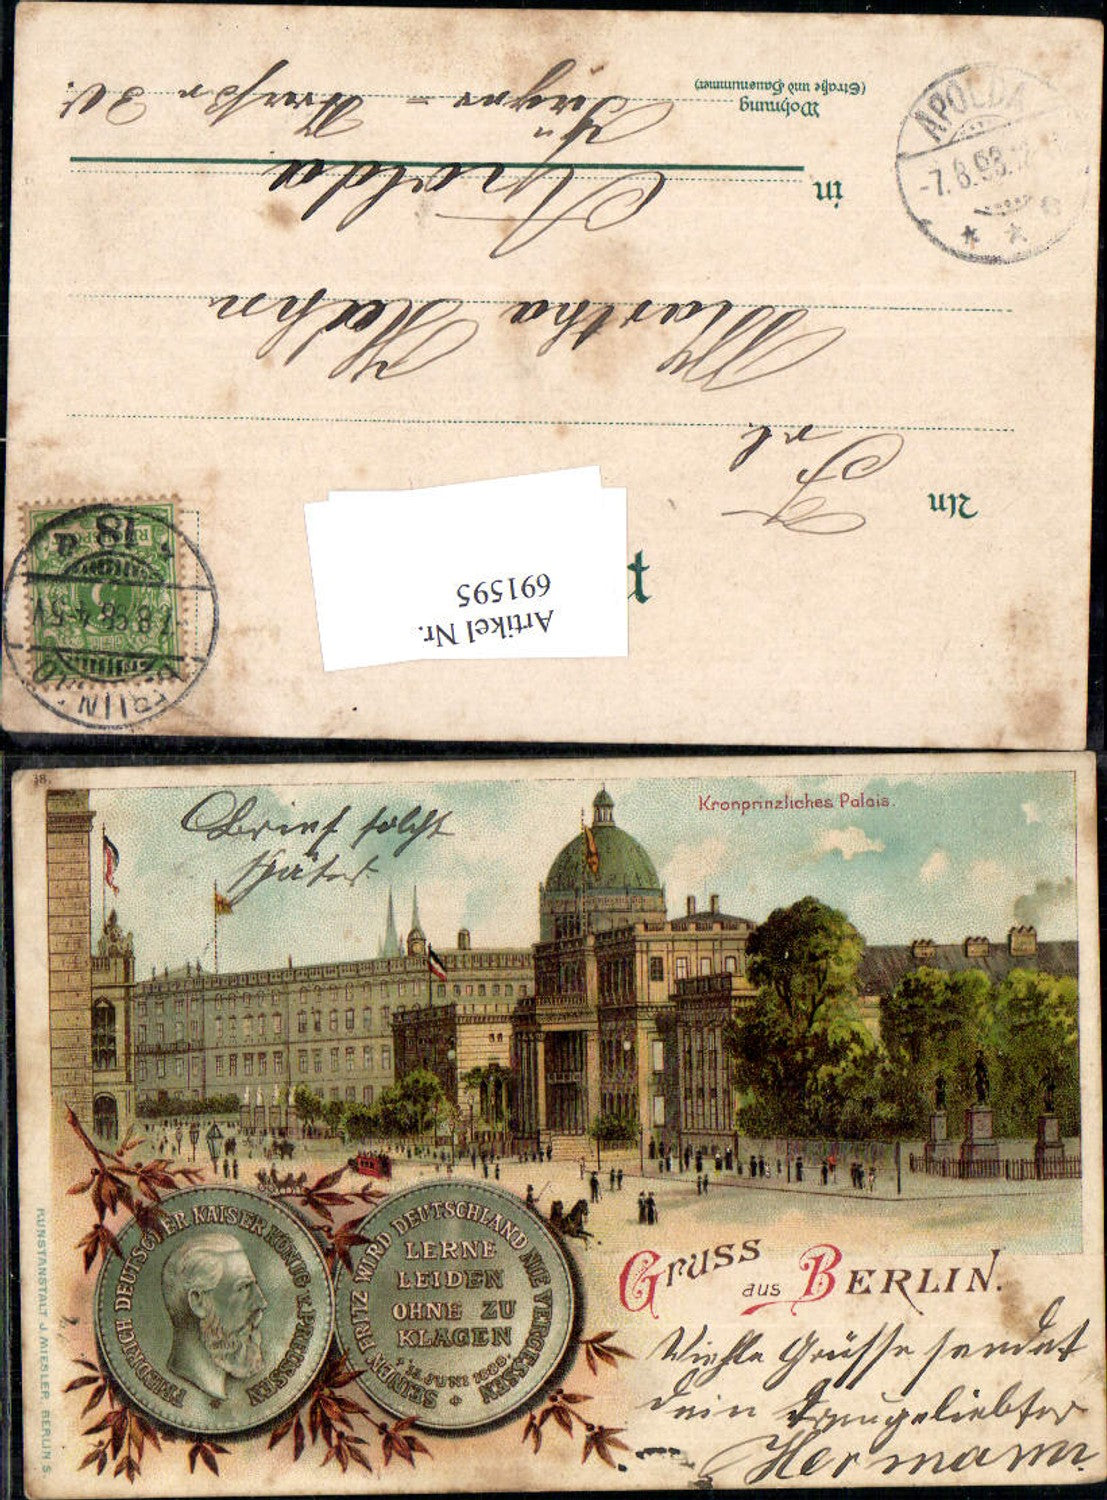 t
Artikel Nr.
691595
An
Frl.
Martha Hahn
in
Apolda
Wohnung
(Straße und Hausnummer)
APOLDA
-7.8.98.12
* *
18 a
REICHSPOST
5
7.8.98.4-5N.
BERLIN
38.
Kronprinzliches Palais.
Brief folgt
später
FRIEDRICH DEUTSCHER KAISER KÖNIG V. PREUSSEN
SEINEN FRITZ WIRD DEUTSCHLAND NIE VERGESSEN
LERNE
LEIDEN
OHNE ZU
KLAGEN
† 15. JUNI 1888.
GRUSS
aus BERLIN.
Viehle Grüsse sendet
dein Treugeliebter
Hermann.
KUNSTANSTALT J. MIESLER, BERLIN S.